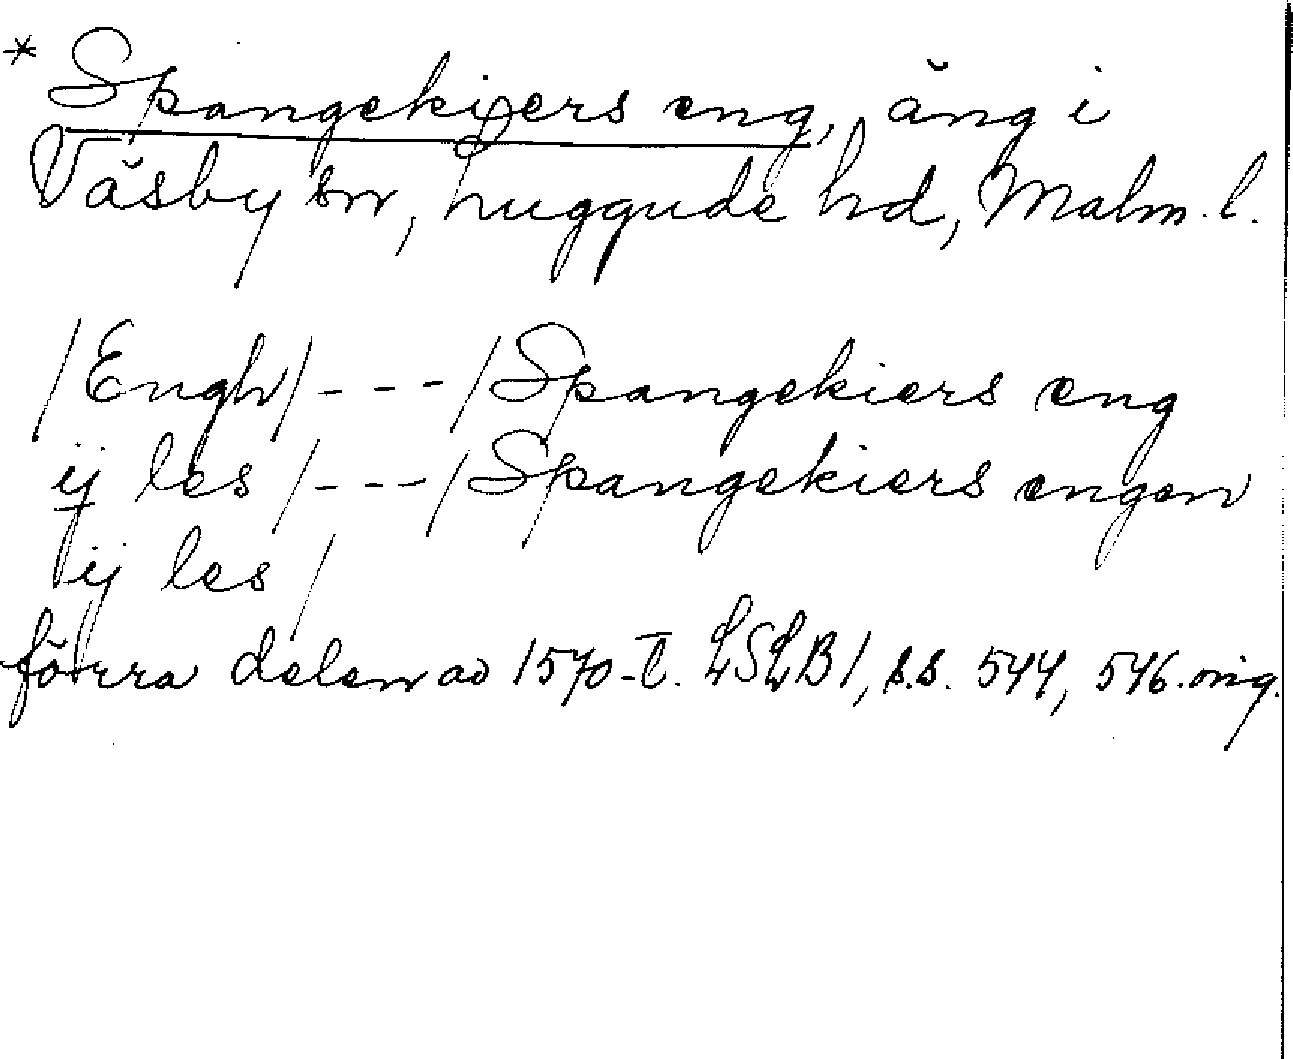 * Spangekiers eng, äng i
Väsby sn, Luggude hd, Malm. l.
/Engh/ - - - /Spangekiers eng
ij les / - - - / Spangekiers engen
ij les /
förra delen av 1570-t. LSLB 1, s.s. 544, 546. orig.